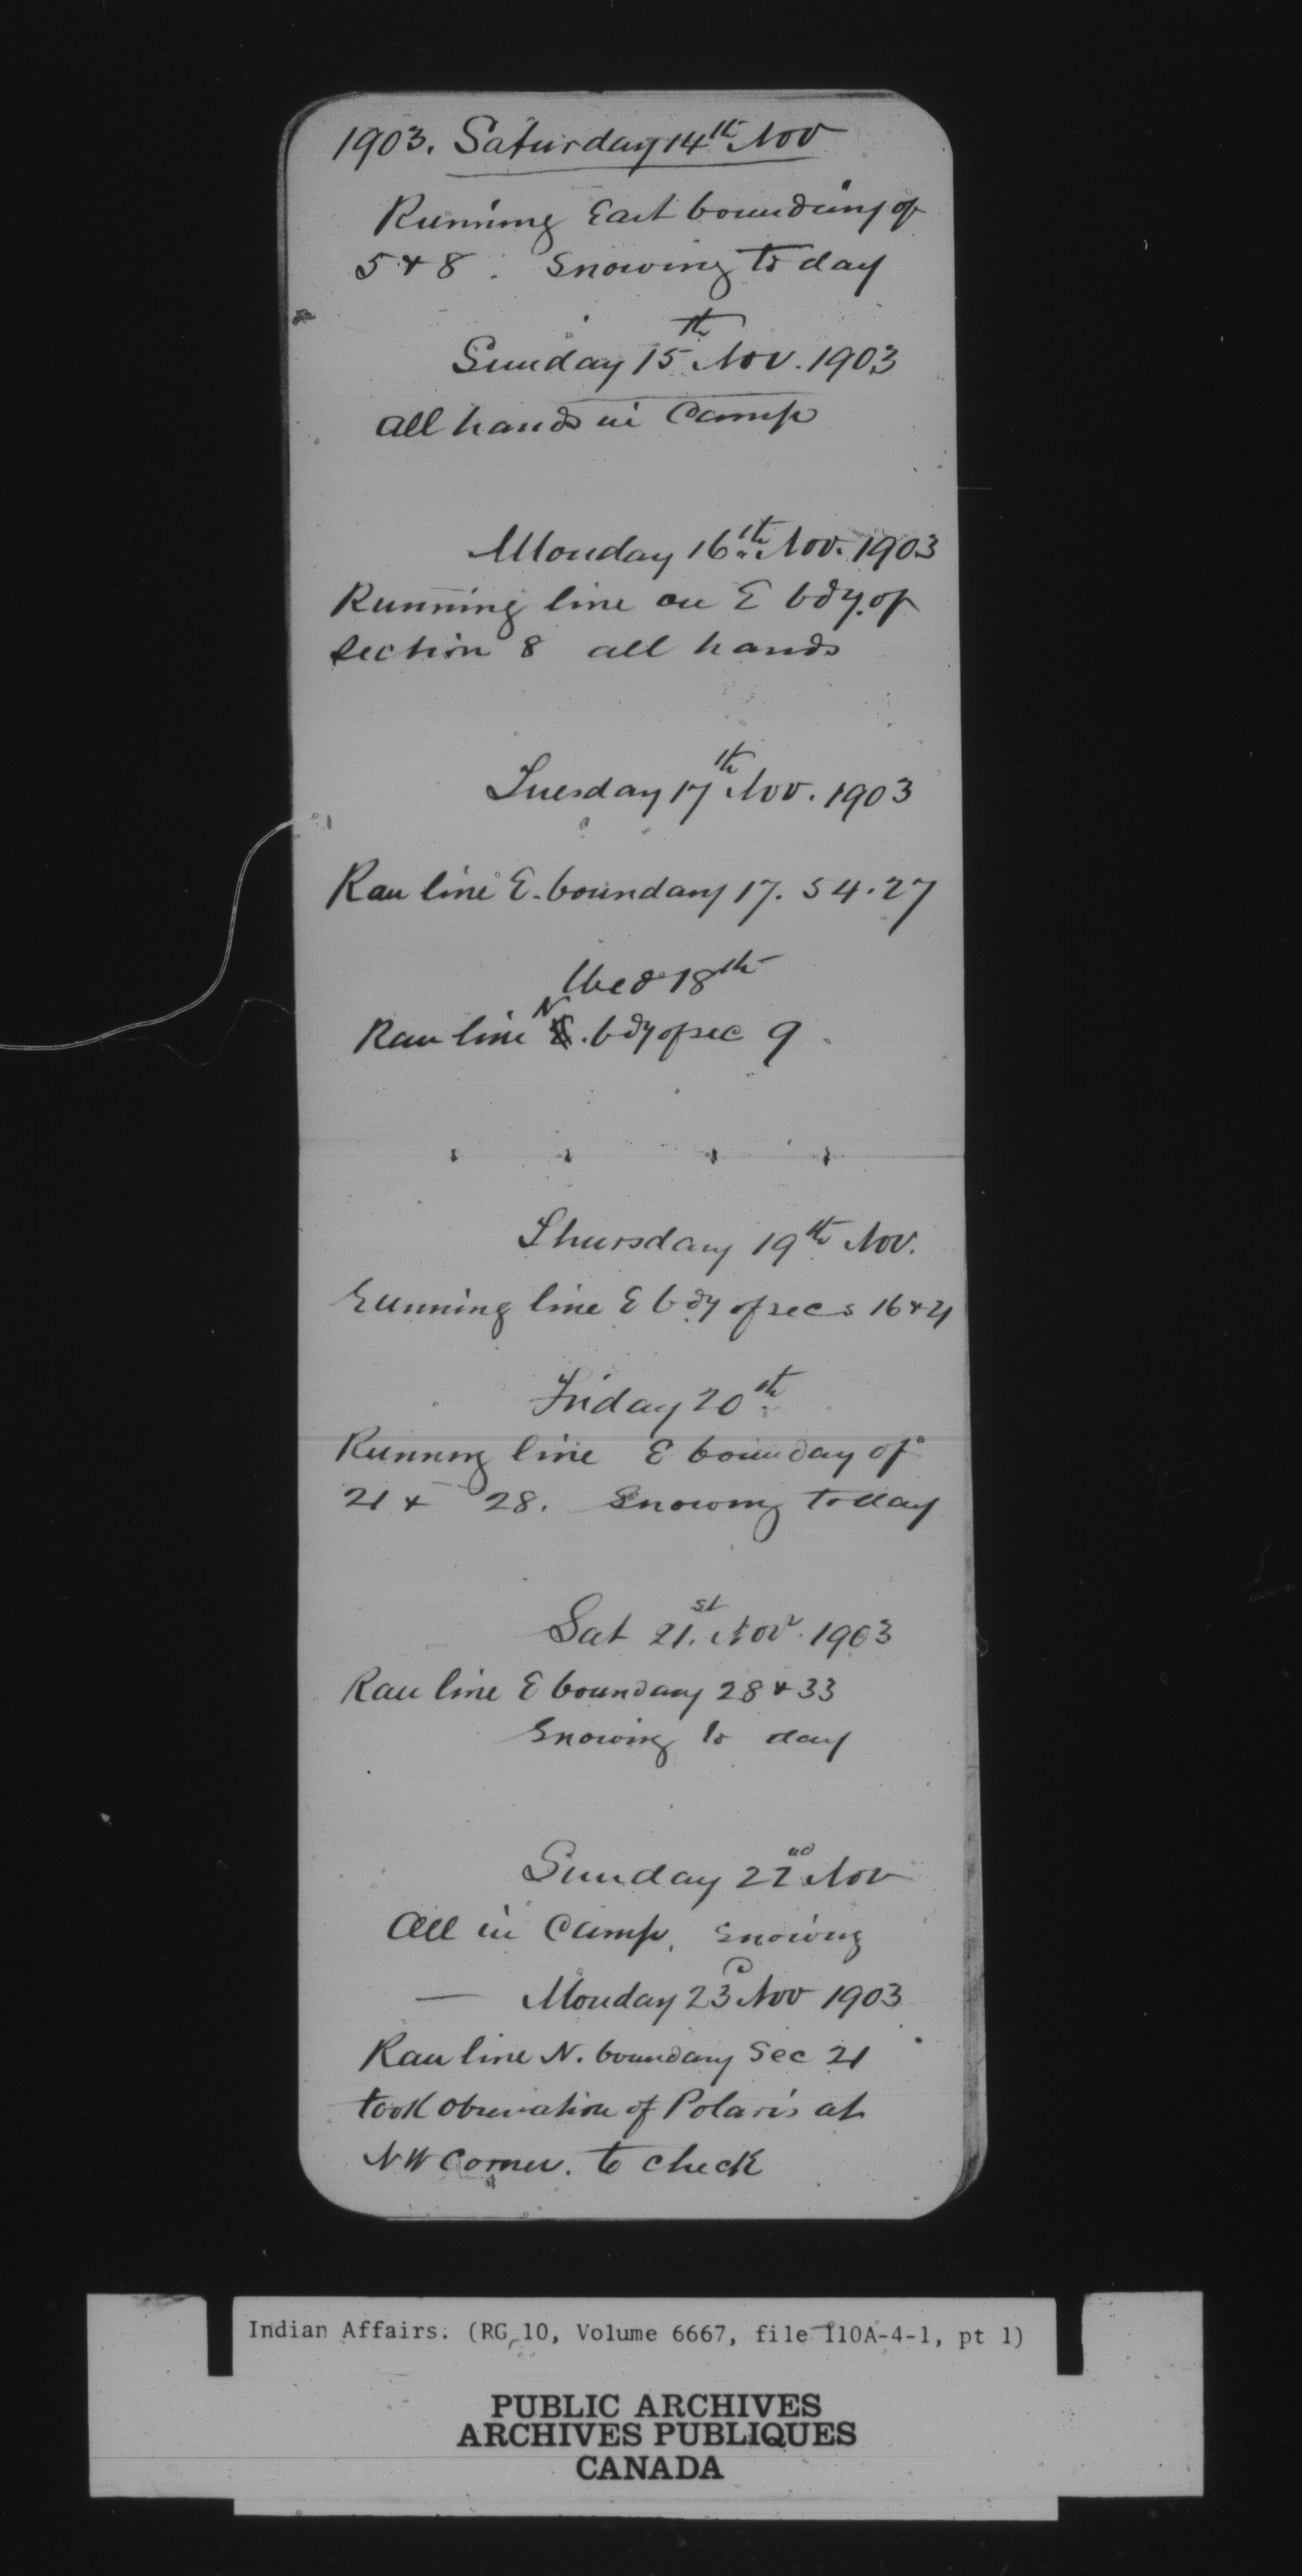 1903. Saturday 14th Nov
Running East boundary of
5 & 8. Snowing to day
Sunday 15th Nov. 1903
all hands in Camp
Monday 16th Nov. 1903
Running line on E bdy. of
section 8 all hands
Tuesday 17th Nov. 1903
Ran line E. boundary 17. 54. 27
Wed 18th
Ran line N. bdy of sec 9
Thursday 19th Nov.
Running line E bdy of secs 16 & 21
Friday 20th
Running line E bounday of
21 & 28. Snowing to day
Sat 21st. Nov. 1903
Ran line E boundary 28 & 33
Snowing to day
Sunday 22nd Nov
All in Camp, Snowing
— Monday 23d Nov 1903
Ran line N. boundary Sec 21
took observation of Polaris at
NW Corner. to check
Indian Affairs. (RG 10, Volume 6667, file 110A-4-1, pt 1)
PUBLIC ARCHIVES
ARCHIVES PUBLIQUES
CANADA